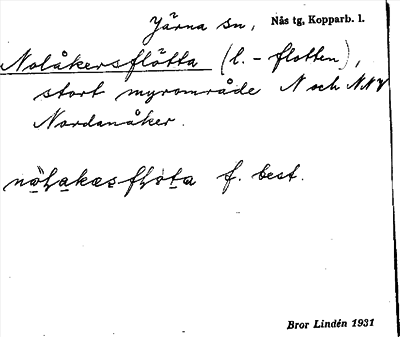 Järna sn, Nås tg, Kopparb. l.
Nolåkersflötta (l. - flotten),
stort myrområde N och NNV
Nordanåker.
f. best.
Bror Lindén 1931